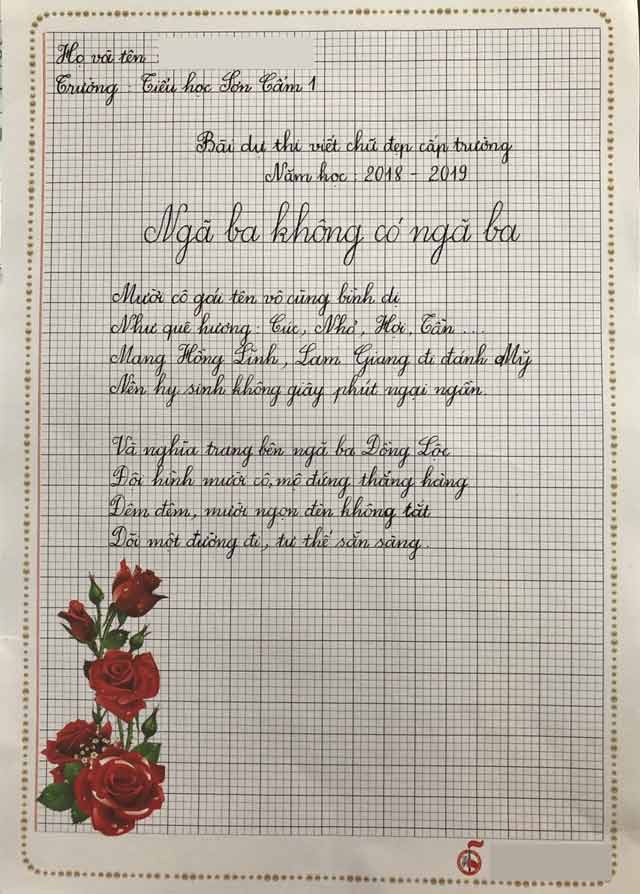 Họ và tên :
Trường : Tiểu học Sơn Cẩm 1
Bài dự thi viết chữ đẹp cấp trường
Năm học : 2018 - 2019
Ngã ba không có ngã ba
Mười cô gái tên vô cùng bình dị
Như quê hương: Cúc, Nhỏ, Hợi, Tần ...
Mang Hồng Lĩnh, Lam Giang đi đánh Mỹ
Nên hy sinh không giây phút ngại ngần.
Và nghĩa trang bên ngã ba Đồng Lộc
Đội hình mười cô, mộ đứng thẳng hàng
Đêm đêm, mười ngọn đèn không tắt
Dõi một đường đi, tư thế sẵn sàng.